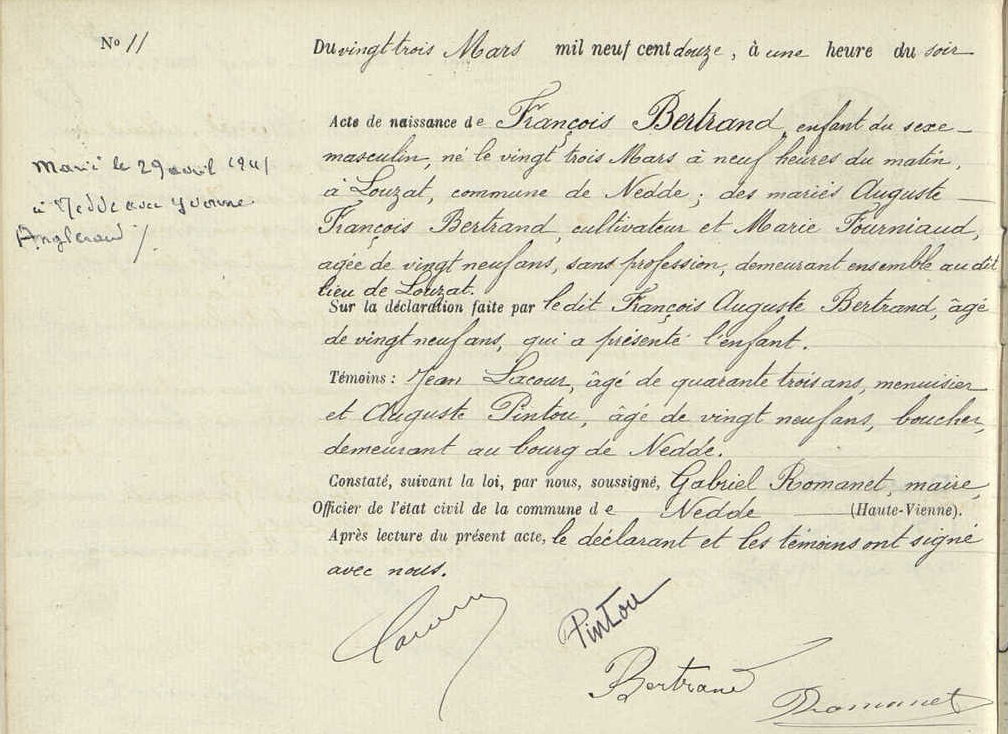 No 11
Du vingt trois Mars mil neuf cent douze, à une heure du soir
Acte de naissance de François Bertrand, enfant du sexe
masculin, né le vingt trois Mars à neuf heures du matin,
à Louzat, commune de Nedde; des mariés Auguste
François Bertrand, cultivateur et Marie Fourniaud,
agée de vingt neuf ans, sans profession, demeurant ensemble au dit
lieu de Louzat.
Sur la déclaration faite par le dit François Auguste Bertrand, âgé
de vingt neuf ans, qui a présenté l'enfant.
Témoins: Jean Lacour, âgé de quarante trois ans, menuisier
et Auguste Pintou, âgé de vingt neuf ans, boucher,
demeurant au bourg de Nedde.
Constaté, suivant la loi, par nous, soussigné, Gabriel Romanet, maire,
Officier de l'état civil de la commune de Nedde (Haute-Vienne).
Après lecture du présent acte, le déclarant et les témoins ont signé
avec nous.
Marié le 29 avril 1941
à Nedde avec Yvonne
Lacour
Pintou
Bertrand
Romanet